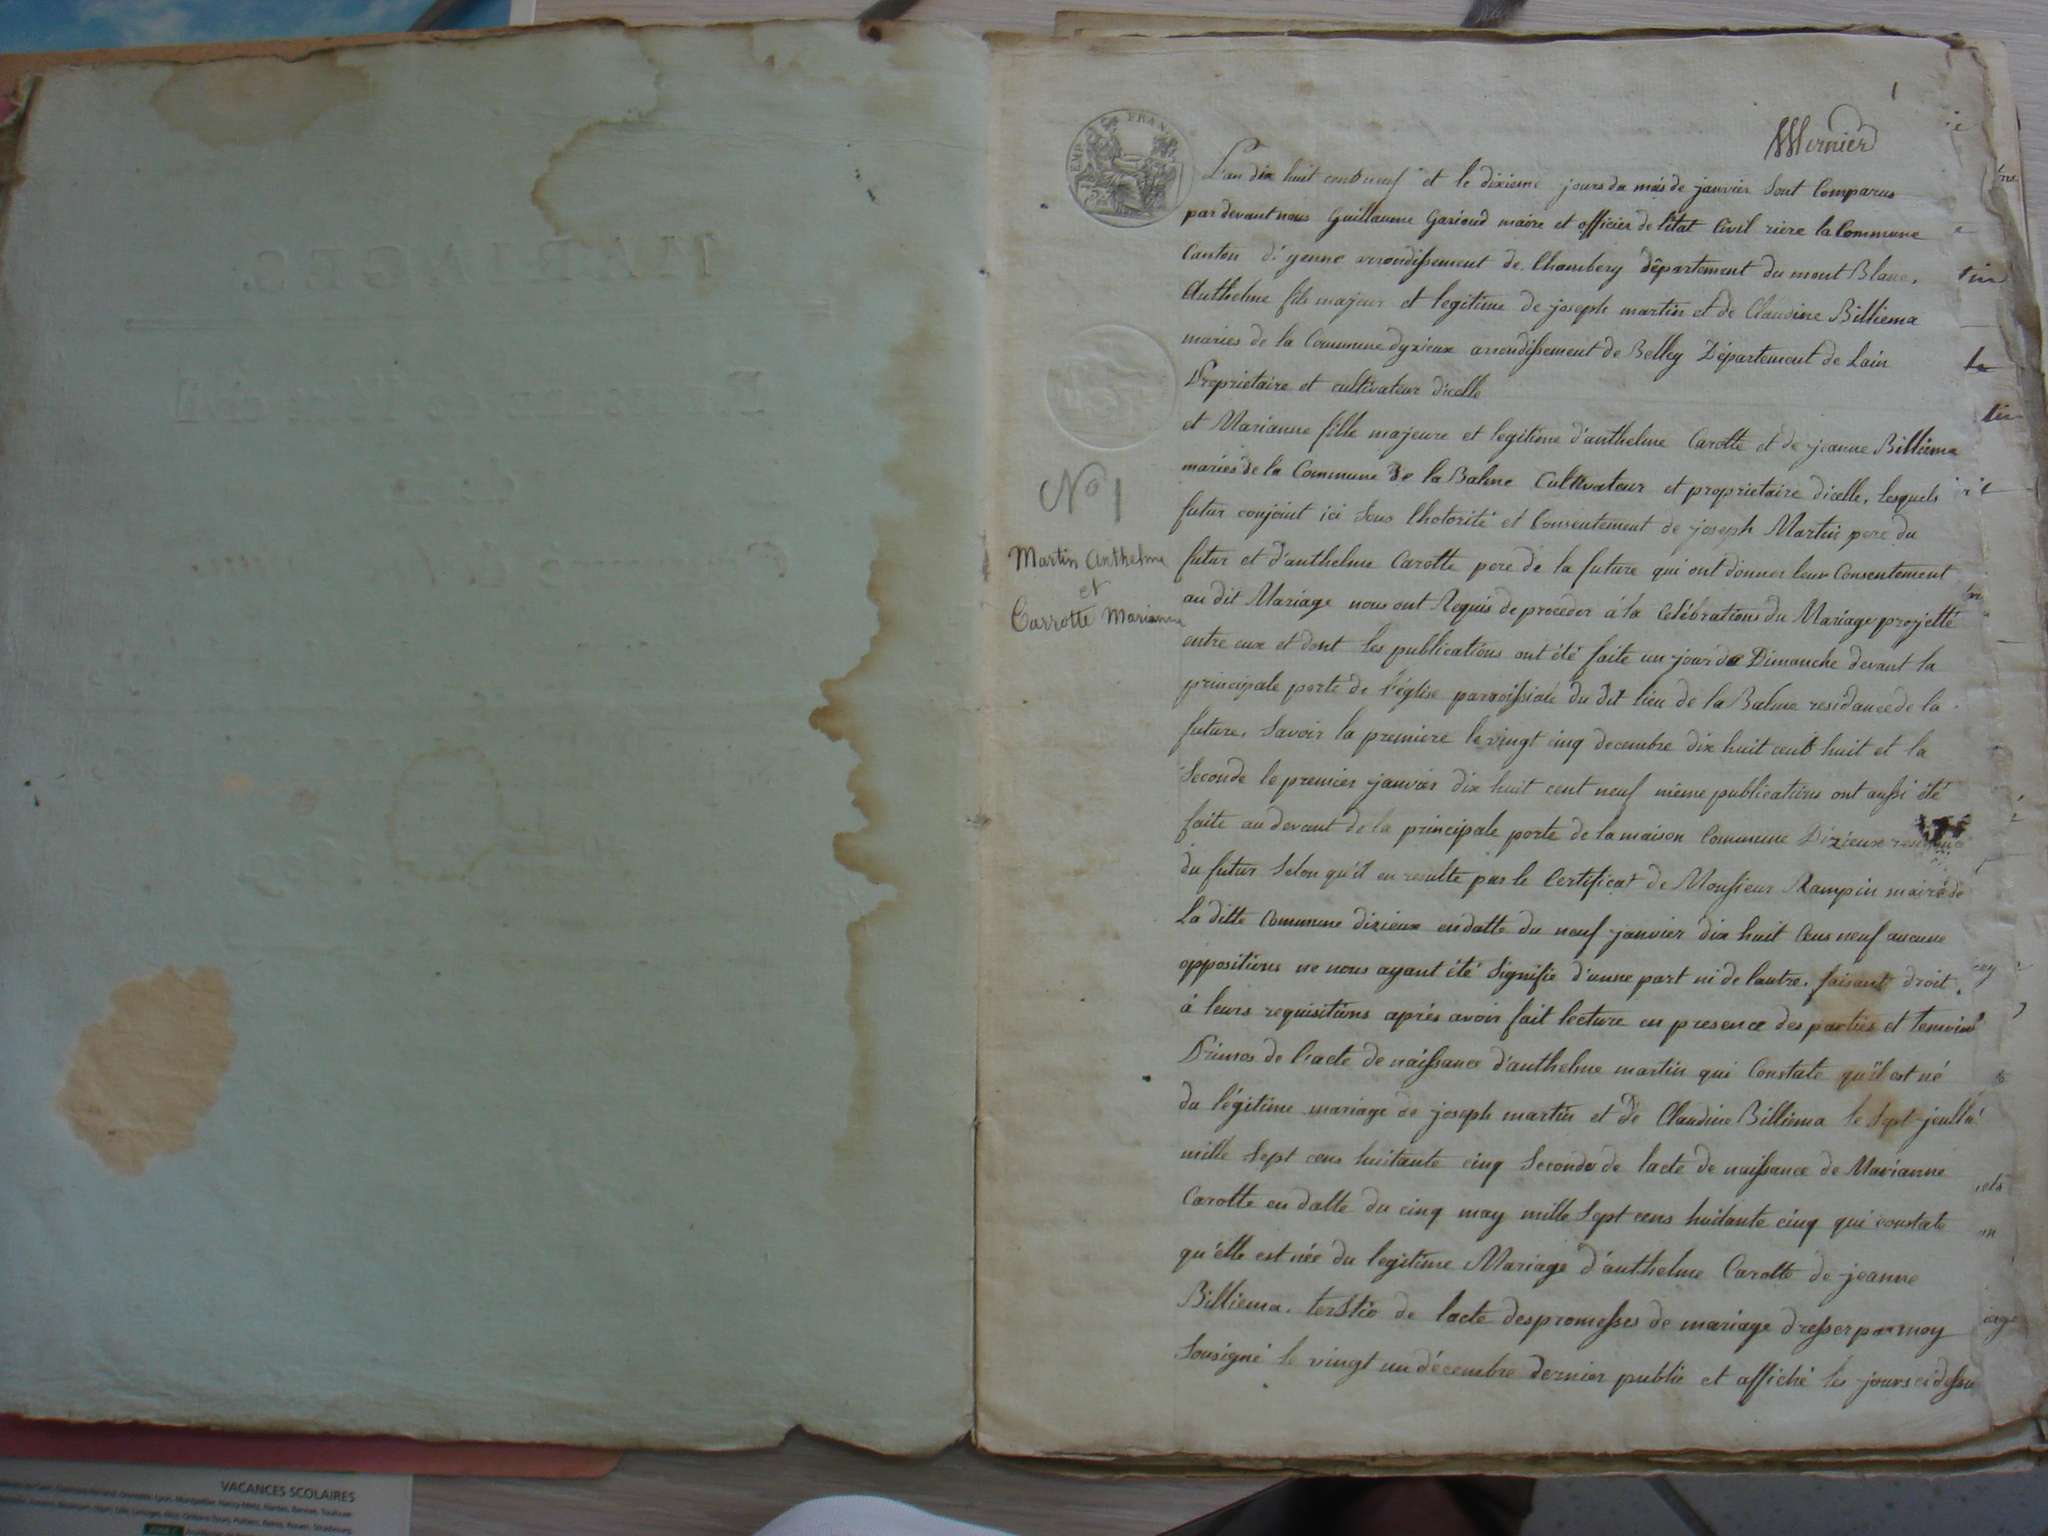 MARIAGES.
1
Mernier
EMP FRAN
L'an dix huit cent neuf et le dixieme jours du mois de janvier Sont Comparus
pardevant nous Guillaume Garioud maire et officier de l'état Civil riere la Commune
Canton d'yenne arrondissement de Chambery département du mont Blanc,
Anthelme fils majeur et legitime de joseph martin et de Claudine Billiema
maries de la Commune dyzieux arrondissement de Belley Département de Lain
Proprietaire et cultivateur dicelle
et Marianne fille majeure et legitime d'anthelme Carotte et de jeanne Billiema
maries de la Commune de la Balme Cultivateur et proprietaire dicelle, lesquels
futur conjoint ici Sous Lhotorité et Consentement de joseph Martin pere du
futur et d'anthelme Carotte pere de la future qui ont donner leur Consentement
au dit Mariage nous ont Requis de proceder à la Celébrations du Mariage projetté
entre eux et dont les publications ont été faite un jour de Dimanche devant la
principale porte de l'église parroissiale du dit lieu de la Balme residance de la
future, Savoir la premiere le vingt cinq decembre dix huit cent huit et la
Seconde le premier janvier dix huit cent neuf même publications ont aussi été
faite au devant de la principale porte de la maison Commune Dizieux
du futur Selon qu'il en resulte par le Certificat de Monsieur Rampin maire de
La ditte Commune dizieux endatte du neuf janvier dix huit Cens neuf aucune
oppositions ne nous ayant été Signifie d'une part ni de lautre, faisant droit
à leurs requisitions aprés avoir fait lecture en presence des parties et temoins
Primos de l'acte de naissance d'anthelme martin qui Constate qu'il est né
du légitime mariage de joseph martin et de Claudine Billiema le Sept jeullet
mille Sept cens huitante cinq Secondo de lacte de naissance de Marianne
Carotte en datte du cinq may mille Sept cens huitante cinq qui constate
qu'elle est née du legitime Mariage d'anthelme Carotte de jeanne
Billiema, terstio de lacte des promesses de mariage dresser par moy
Sousigné le vingt un décembre dernier publié et affiché les jours ci dessu
No 1
Martin Anthelme
et
Carrotte Marianne
VACANCES SCOLAIRES